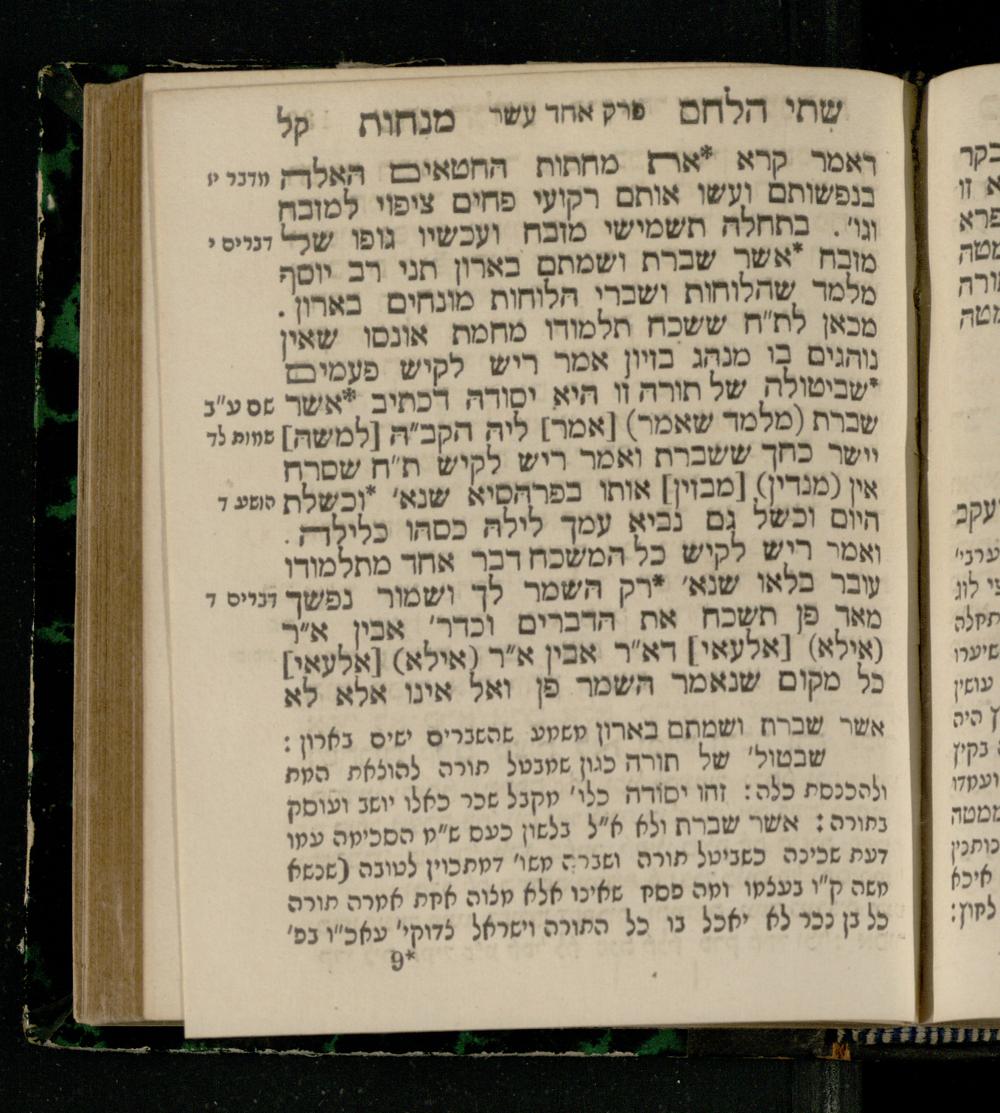 שתי הלחם פרק אחד עשר מנחות קל
ראמר קרא *את מחתות החטאים האלה מדבר יו
בנפשותם ועשו אותם רקועי פחים ציפוי למזבח
וגו'. בתחלה תשמישי מזבח ועכשיו גופו של דברים י
מזבח *אשר שברת ושמתם בארון תני רב יוסף
מלמד שהלוחות ושברי הלוחות מונחים בארון .
מכאן לת"ח ששכח תלמודו מחמת אונסו שאין
נוהגים בו מנהג בזיון אמר ריש לקיש פעמים
*שביטולה של תורה זו היא יסודה דכתיב *אשר שם ע"ב
שברת (מלמד שאמר) [אמר] ליה הקב"ה [למשה] שמות לד
יישר כחך ששברת ואמר ריש לקיש ת"ח שסרח
אין (מנדין) [מבזין] אותו בפרהסיא שנא' *וכשלת הושע ד
היום וכשל גם נביא עמך לילה כסהו כלילה .
ואמר ריש לקיש כל המשכח דבר אחד מתלמודו
עובר בלאו שנא' *רק השמר לך ושמור נפשך דברים ד
מאד פן תשכח את הדברים וכדר' אבין א"ר
(אילא) [אלעאי] דא"ר אבין א"ר (אילא) [אלעאי]
כל מקום שנאמר השמר פן ואל אינו אלא לא
אשר שברת ושמתם בארון משמע שהשברים ישים בארון :
שבטול' של תורה כגון שמבטל תורה להולאת המת
ולהכנסת כלה : זהו יסודה כלו' מקבל שכר כאלו יושב ועוסק
בתורה : אשר שברת ולא א"ל בלשון כעס ש"מ הסכימה עמו
דעת שכינה כשביטל תורה ושברה משו' דמתכוין לטובה (שנשא
משה ק"ו בעלמו ומה פסח שאינו אלא מלוה אחת אמרה תורה
כל בן נכר לא יאכל בו כל התורה וישראל לדוקי' עאכ"ו בפ'
9*
בקר
א זו
פרא
מטה
תורה
מטה
יעקב
ערבי'
פי לוג
תחלה
שיערו
עושין
היה
בקיץ
ועמדו
ממטה
כותבין
איכא
לחוץ: